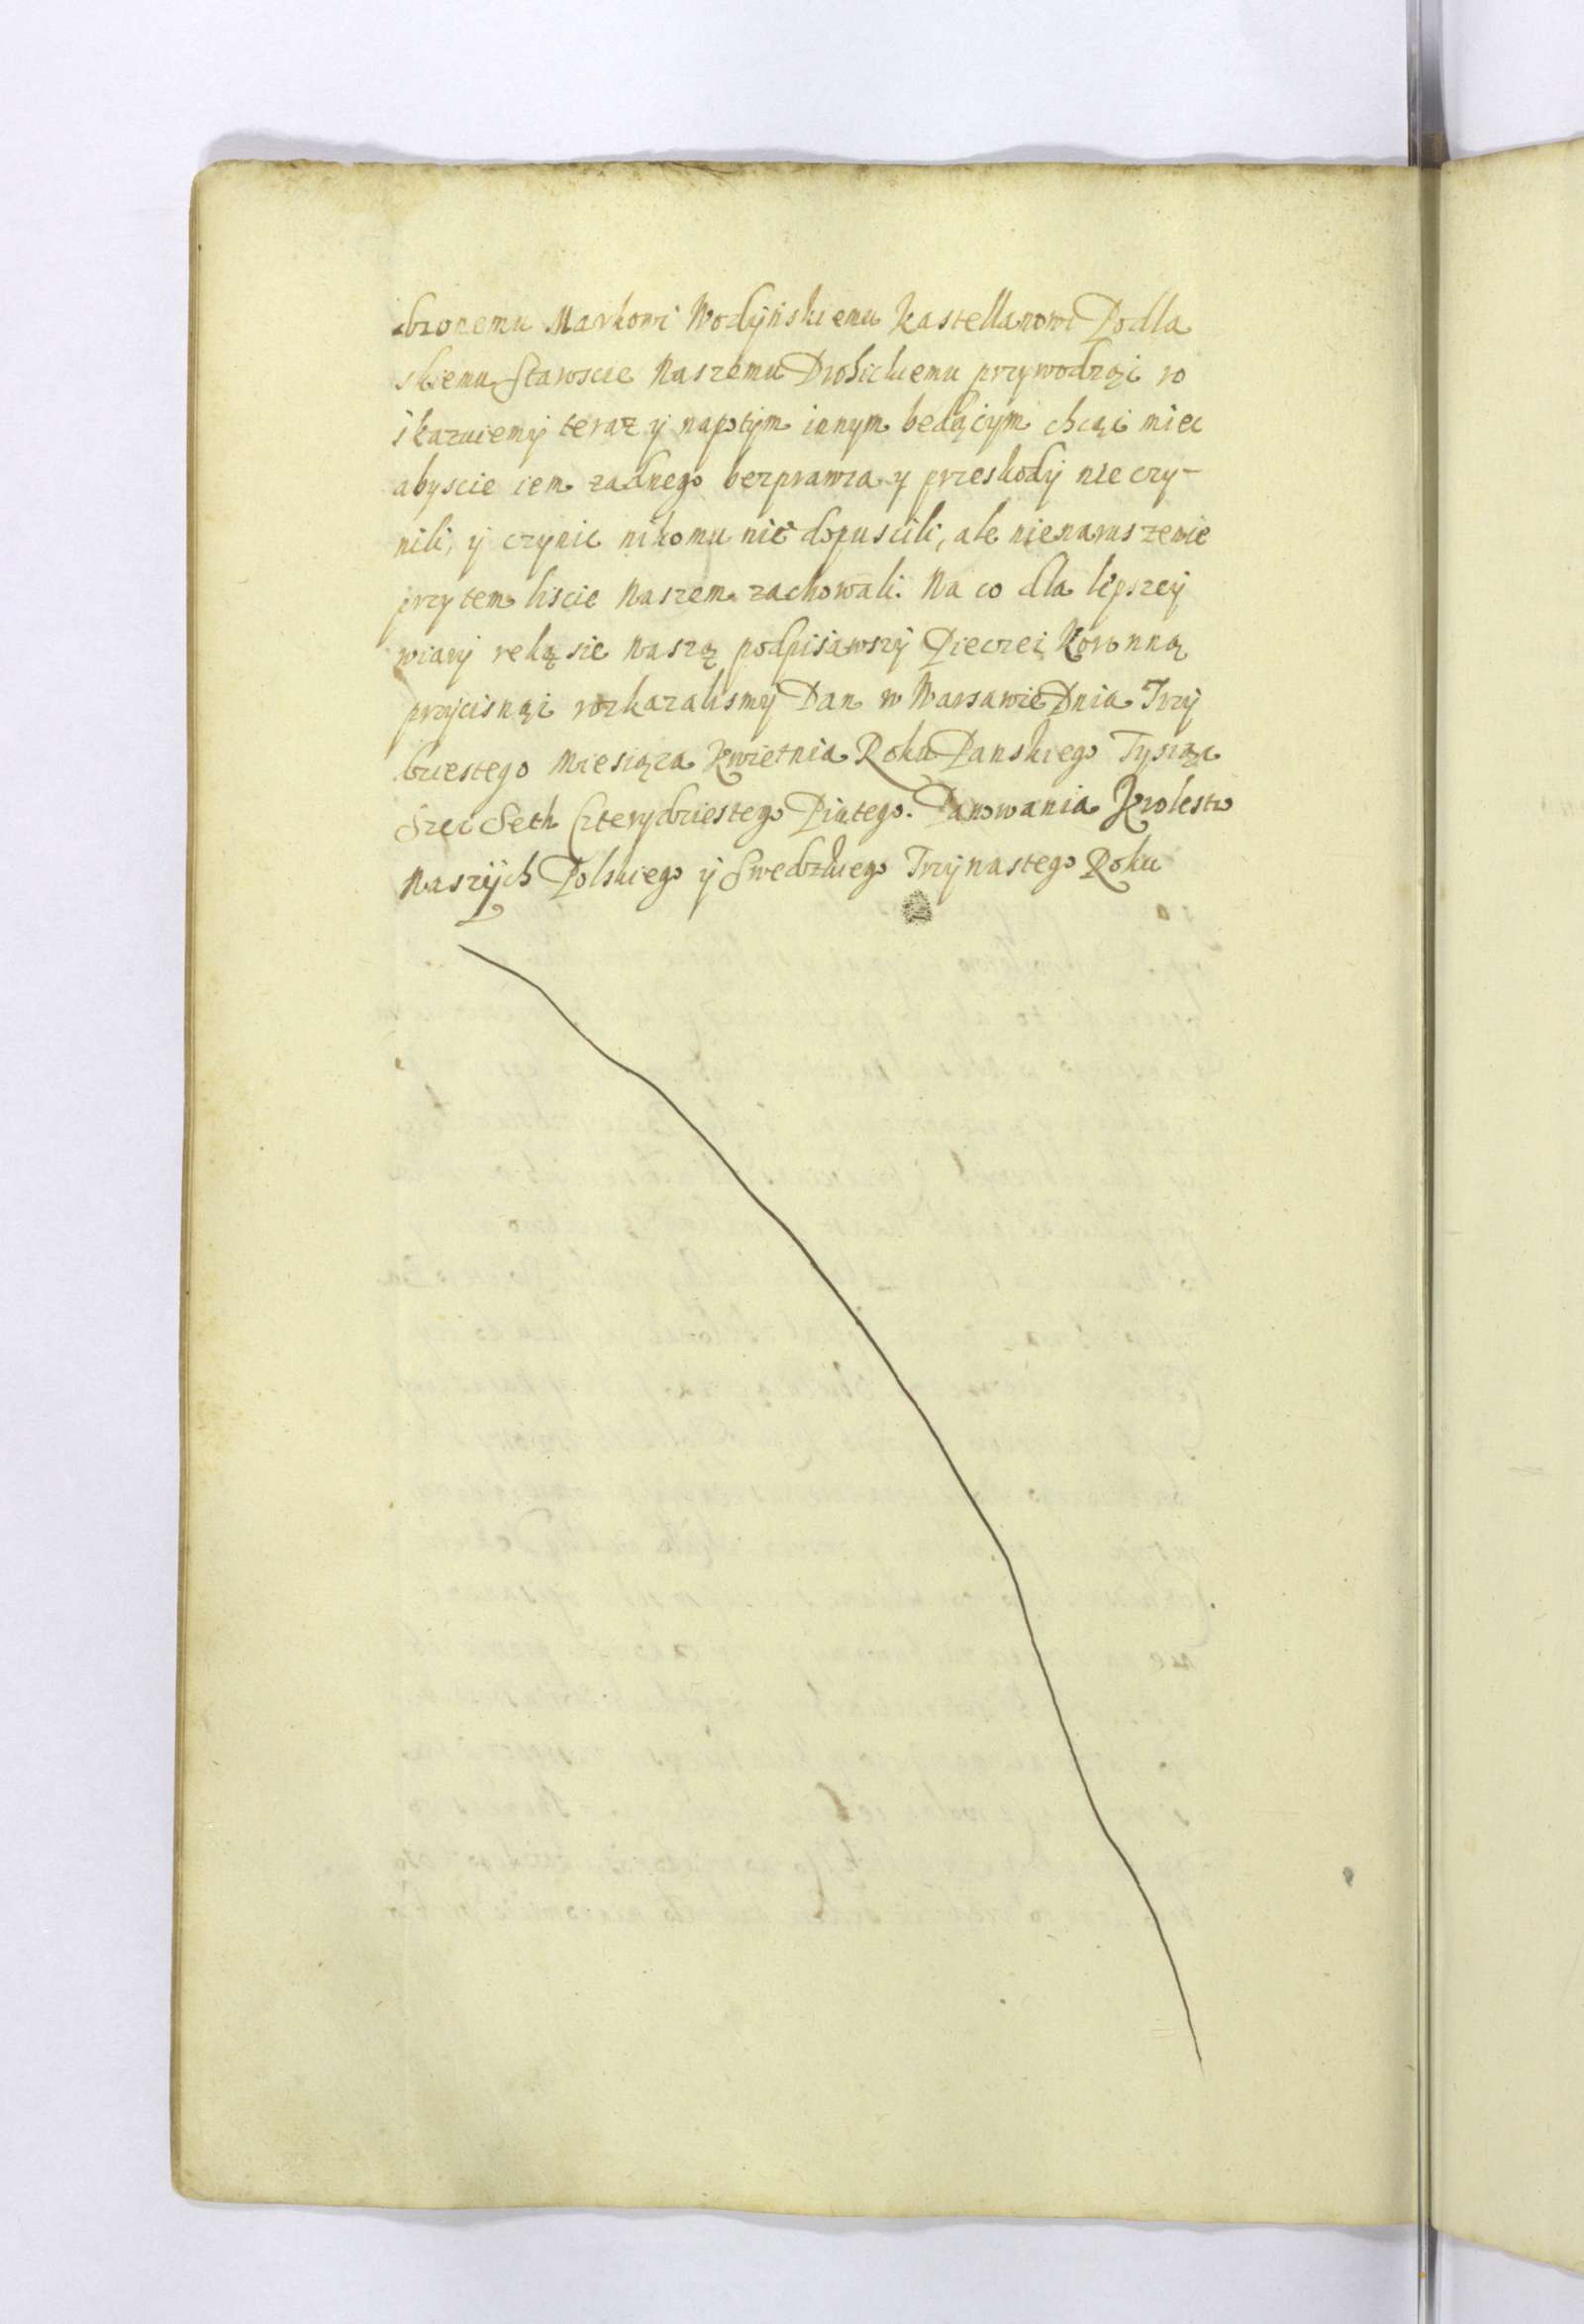 dzonemu Markowi Wodyńskiemu Kastellanowi Podla
skiemu Staroscie Naszemu Drohickiemu przywodząc ro
skazuiemy teraz y napotym innym bedącym chcąc miec
abyscie iem zadnego bezprawia y przeskody nie czy-
nili, y czynic nikomu nie dopuscili, ale nienaruszenie
przy tem liscie Naszem zachowali. Na co dla lepszey
wiary reką sie Naszą podpisawszy Pieczęć Koronną
przycisnąc rozkazalismy Dan w Warsawie Dnia Trzy
dziestego Miesiąca Kwietnia Roku Panskiego Tysiąc
Szec Seth Czterydziestego Piątego. Panowania Krolestw
Naszych Polskiego y Swedzkiego Trzynastego Roku